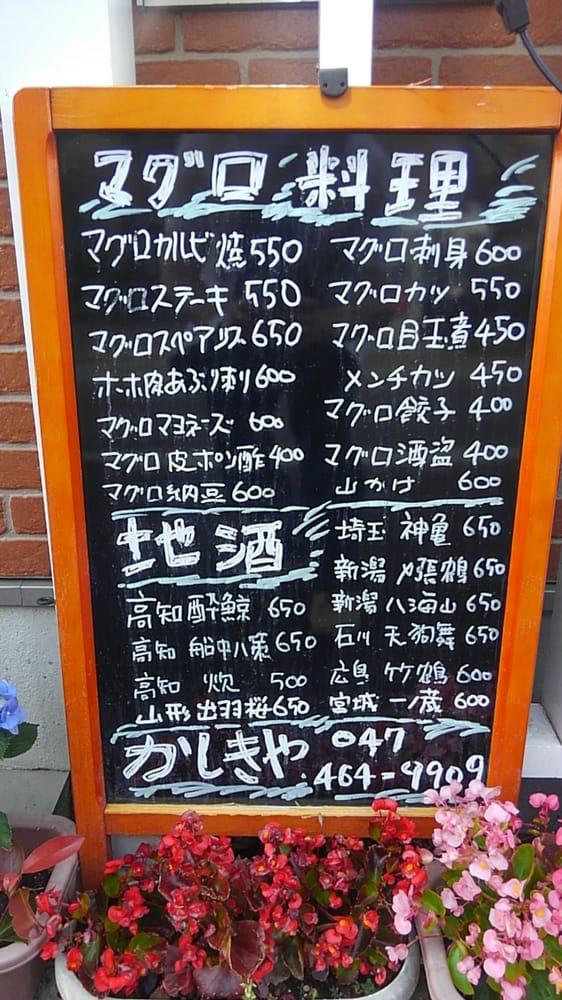 マグロ料理
マグロカルビ焼550
マグロステーキ 550
マグロスペアリブ650
ホホ肉あぶり刺600
マグロマヨネーズ 600
マグロ皮ポン酢400
マグロ納豆600
マグロ刺身600
マグロカツ 550
マグロ目玉煮450
メンチカツ 450
マグロ餃子 400
マグロ酒盗 400
山かけ 600
地酒
高知酔鯨 650
高知 船中八策650
高知 炊 500
山形出羽桜650
埼玉 神亀650
新潟〆張鶴650
新潟 八海山650
石川 天狗舞650
広島 竹鶴600
宮城 一ノ蔵 600
かしきや 047
464-9909